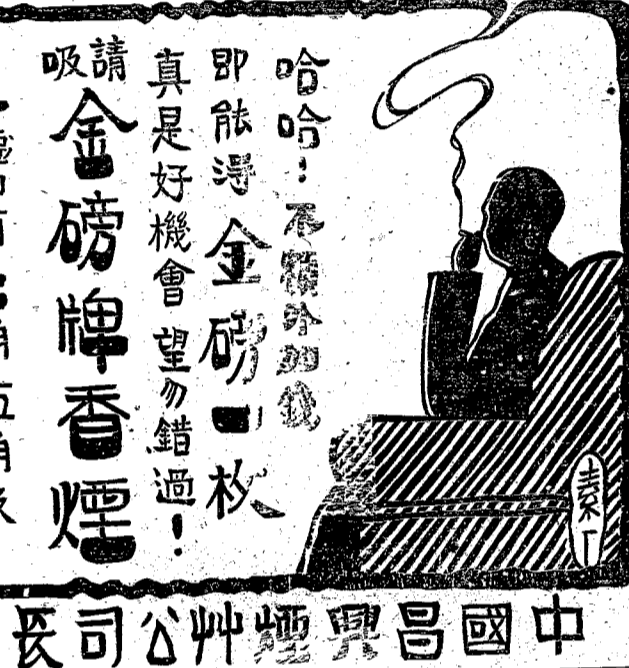 哈哈!不額外加錢
即能得金磅一枚
真是好機會 望勿錯過!
請吸金磅牌香煙
素丁
中國昌興煙艸公司長